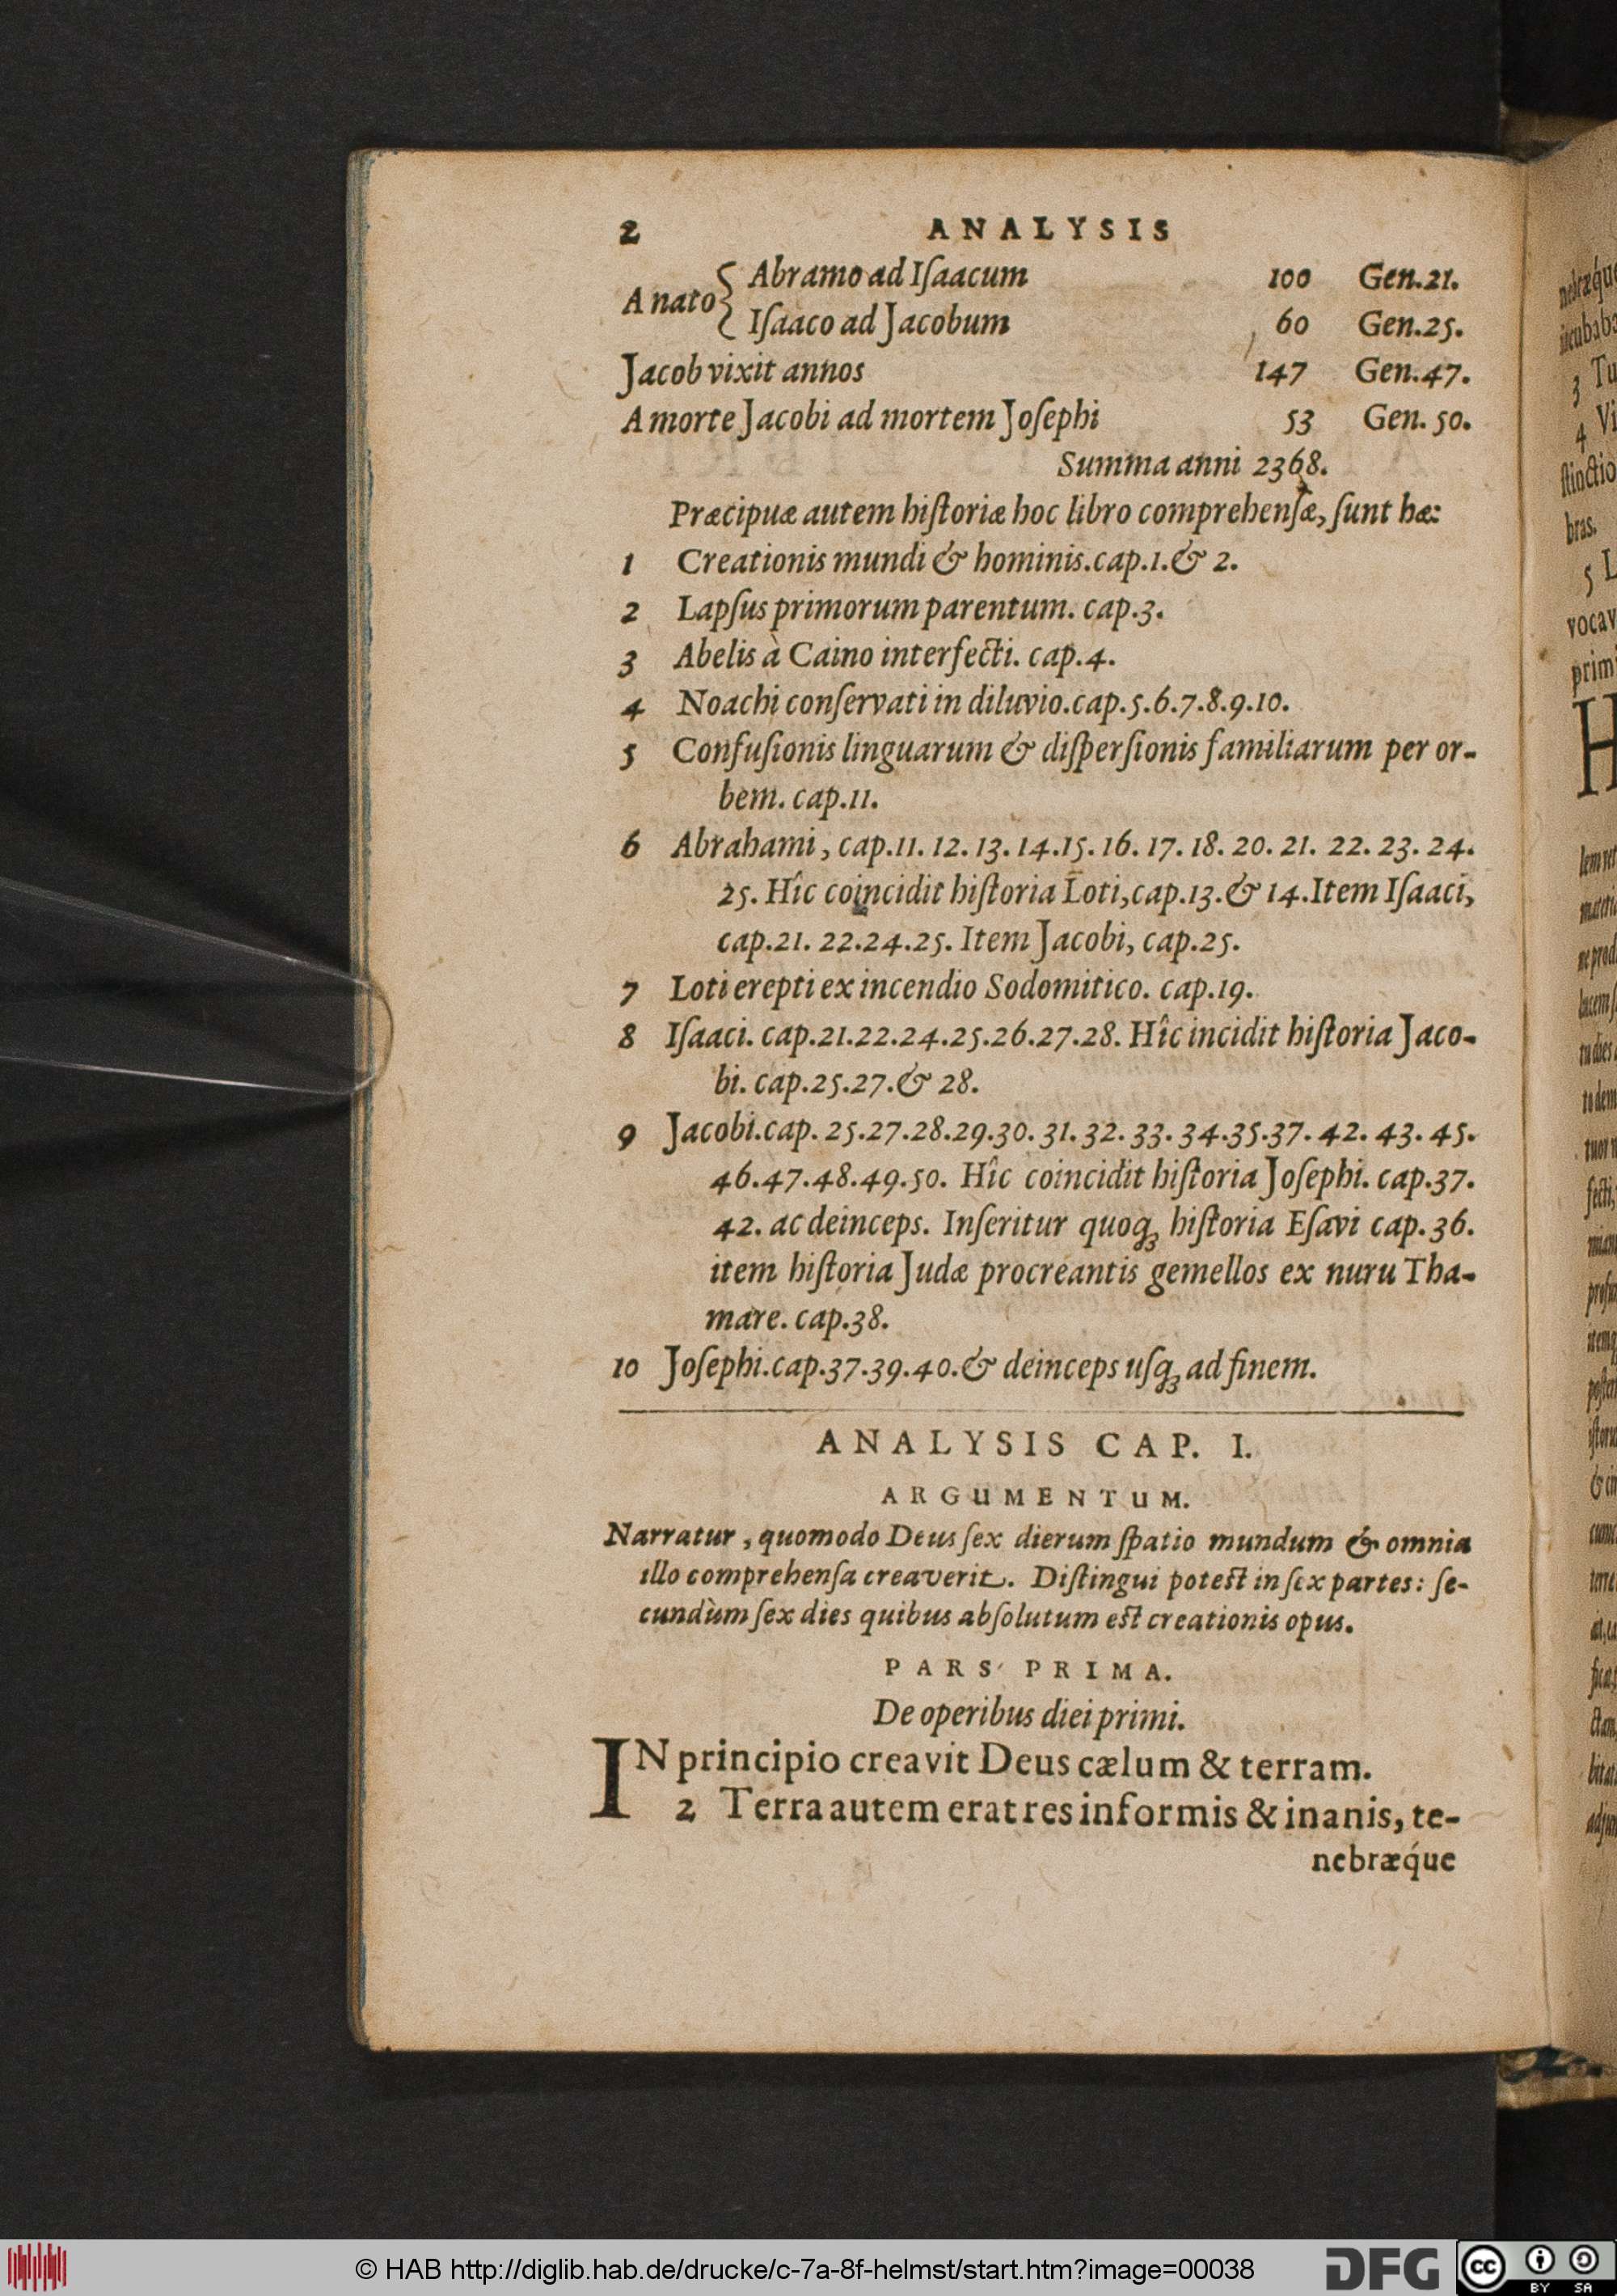 2 ANALYSIS
A nato { Abramo ad Iſaacum 100 Gen.21.
Iſaaco ad Jacobum 60 Gen.25.
Jacob vixit annos 147 Gen.47.
A morte Jacobi ad mortem Joſephi 53 Gen. 50.
Summa anni 2368.
Præcipuæ autem hiſtoriæ hoc libro comprehenſæ, ſunt hæ:
1 Creationis mundi & hominis.cap.1.& 2.
2 Lapſus primorum parentum. cap.3.
3 Abelis à Caino interfecti. cap.4.
4 Noachi conſervati in diluvio.cap.5.6.7.8.9.10.
5 Confuſionis linguarum & diſperſionis familiarum per or-
bem. cap.11.
6 Abrahami, cap.11. 12. 13. 14.15. 16. 17. 18. 20. 21. 22. 23. 24.
25. Hîc coincidit hiſtoria Loti,cap.13.& 14.Item Iſaaci,
cap.21. 22.24.25. Item Jacobi, cap.25.
7 Loti erepti ex incendio Sodomitico. cap.19.
8 Iſaaci. cap.21.22.24.25.26.27.28. Hîc incidit hiſtoria Jaco-
bi. cap.25.27.& 28.
9 Jacobi.cap. 25.27.28.29.30. 31. 32. 33. 34.35.37. 42. 43. 45.
46.47.48.49.50. Hîc coincidit hiſtoria Joſephi. cap.37.
42. ac deinceps. Inſeritur quoqꝫ hiſtoria Eſavi cap. 36.
item hiſtoria Judæ procreantis gemellos ex nuru Tha-
mare. cap.38.
10 Joſephi.cap.37.39.40.& deinceps uſqꝫ ad finem.
ANALYSIS CAP. I.
ARGUMENTUM.
Narratur, quomodo Deus ſex dierum ſpatio mundum & omnia
illo comprehenſa creaverit. Diſtingui poteſt in ſex partes: ſe-
cundùm ſex dies quibus abſolutum eſt creationis opus.
PARS PRIMA.
De operibus diei primi.
IN principio creavit Deus cælum & terram.
2 Terra autem erat res informis & inanis, te-
nebræq́ue
© HAB http://diglib.hab.de/drucke/c-7a-8f-helmst/start.htm?image=00038
DFG
cc BY SA